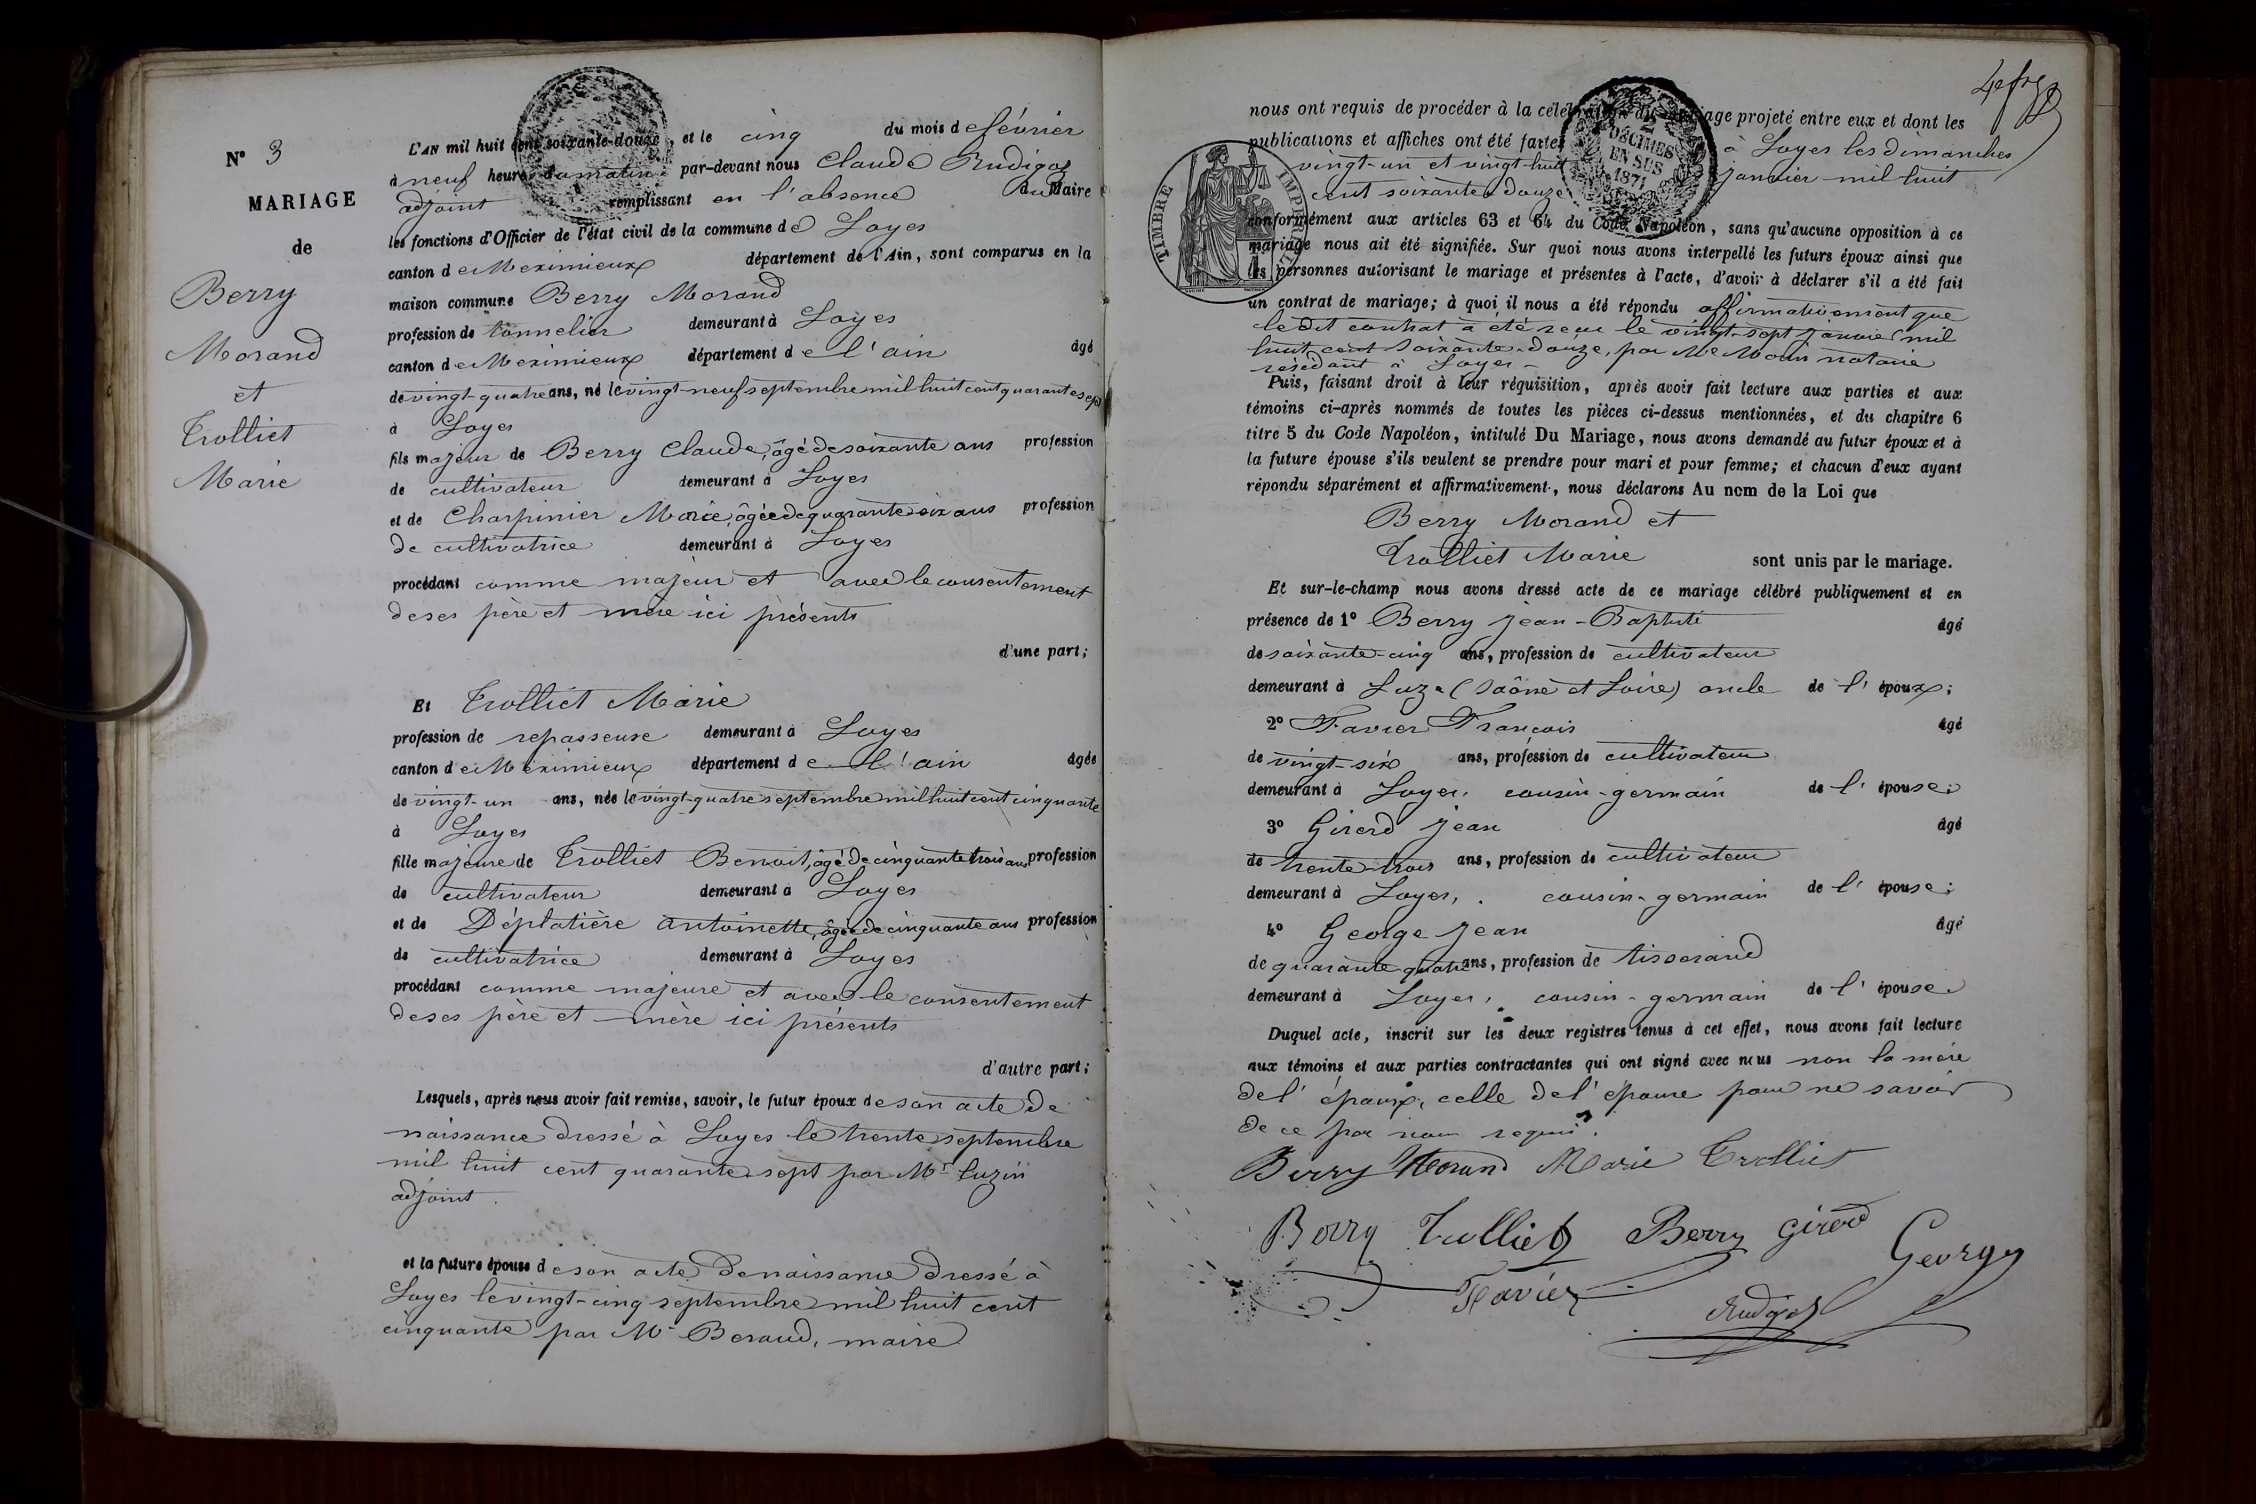 N° 3
MARIAGE
de
Berry
Morand
et
Trolliet
Marie
L'AN mil huit cent soixante-douze, et le cinq du mois de février
à neuf heures du matin par-devant nous Claude Rudigoz
adjoint remplissant en l'absence du Maire
les fonctions d'Officier de l'état civil de la commune de Loyes
canton de Meximieux département de l'Ain, sont comparus en la
maison commune Berry Morand
profession de tonnelier demeurant à Loyes
canton de Meximieux département de l'ain âgé
de vingt-quatre ans, né le vingt-neuf septembre mil huit cent quarante sept
à Loyes
fils majeur de Berry Claude, âgé de soixante ans profession
de cultivateur demeurant à Loyes
et de Charpinier Marie, âgée de quarante six ans profession
de cultivatrice demeurant à Loyes
procédant comme majeur et avec le consentement
de ses père et mère ici présents
d'une part;
Et Trolliet Marie
profession de repasseuse demeurant à Loyes
canton de Meximieux département de l'ain âgée
de vingt-un ans, née le vingt-quatre septembre mil huit cent cinquante
à Loyes
fille majeure de Trolliet Benoit, âgé de cinquante trois ans profession
de cultivateur demeurant à Loyes
et de Déplatière antoinette, âgée de cinquante ans profession
de cultivatrice demeurant à Loyes
procédant comme majeure et avec le consentement
de ses père et mère ici présents
d'autre part;
Lesquels, après nous avoir fait remise, savoir, le futur époux de son acte de
naissance dressé à Loyes le trente septembre
mil huit cent quarante sept par Mr Luzin
adjoint.
et la future épouse de son acte de naissance dressé à
Loyes le vingt-cinq septembre mil huit cent
cinquante par Mr Beraud, maire
nous ont requis de procéder à la célébration du mariage projeté entre eux et dont les
publications et affiches ont été faites à Loyes les dimanches
vingt-un et vingt-huit janvier mil huit
cent soixante douze
2 DÉCIMES
EN SUS
1871
TIMBRE IMPERIAL
conformément aux articles 63 et 64 du Code Napoléon, sans qu'aucune opposition à ce
mariage nous ait été signifiée. Sur quoi nous avons interpellé les futurs époux ainsi que
les personnes autorisant le mariage et présentes à l'acte, d'avoir à déclarer s'il a été fait
un contrat de mariage; à quoi il nous a été répondu affirmativement que
le dit contrat a été reçu le vingt-sept janvier mil
huit cent soixante-douze, par Me notaire
résidant à Loyes
Puis, faisant droit à leur réquisition, après avoir fait lecture aux parties et aux
témoins ci-après nommés de toutes les pièces ci-dessus mentionnées, et du chapitre 6
titre 5 du Code Napoléon, intitulé Du Mariage, nous avons demandé au futur époux et à
la future épouse s'ils veulent se prendre pour mari et pour femme; et chacun d'eux ayant
répondu séparément et affirmativement, nous déclarons Au nom de la Loi que
Berry Morand et
Trolliet Marie sont unis par le mariage.
Et sur-le-champ nous avons dressé acte de ce mariage célébré publiquement et en
présence de 1° Berry Jean-Baptiste âgé
de soixante-cinq ans, profession de cultivateur
demeurant à (Saône et Loire) oncle de l'époux;
2° Favier François âgé
de vingt-six ans, profession de cultivateur
demeurant à Loyes, cousin-germain de l'épouse;
3° Girerd Jean âgé
de trente trois ans, profession de cultivateur
demeurant à Loyes, cousin-germain de l'épouse;
4° George Jean âgé
de quarante quatre ans, profession de tisserand
demeurant à Loyes, cousin-germain de l'épouse
Duquel acte, inscrit sur les deux registres tenus à cet effet, nous avons fait lecture
aux témoins et aux parties contractantes qui ont signé avec nous non la mère
de l'époux, celle de l'épouse pour ne savoir
de ce par nous requis.
Berry Morand Marie Trolliet
Berry Trolliet Berry Girerd George
Favier Rudigoz